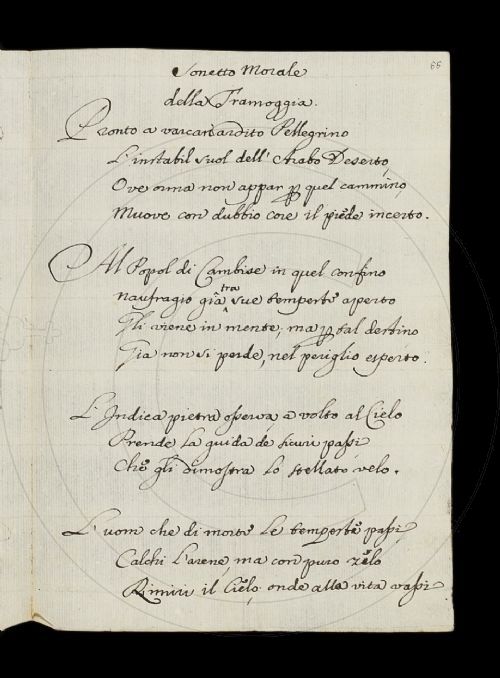 66
Sonetto Morale
della Tramoggia.
Pronto a varcar ardito Pellegrino
L'instabil suol dell' Arabo Deserto,
Ove orma non appar p quel cammino,
Muove con dubbio core il piede incerto.
Al Popol di Cambise in quel confino
Naufragio già tra sue tempeste aperto
Gli viene in mente; ma p tal destino
Già non si perde, nel periglio esperto.
L'Indica pietra osserva, e volto al Cielo
Prende la guida de sicuri passi
Che gli dimostra lo stellato velo.
L'uom che di morte le tempeste passi,
Calchi l'arene, ma con puro zelo
Rimiri il Cielo, onde alla vita vassi